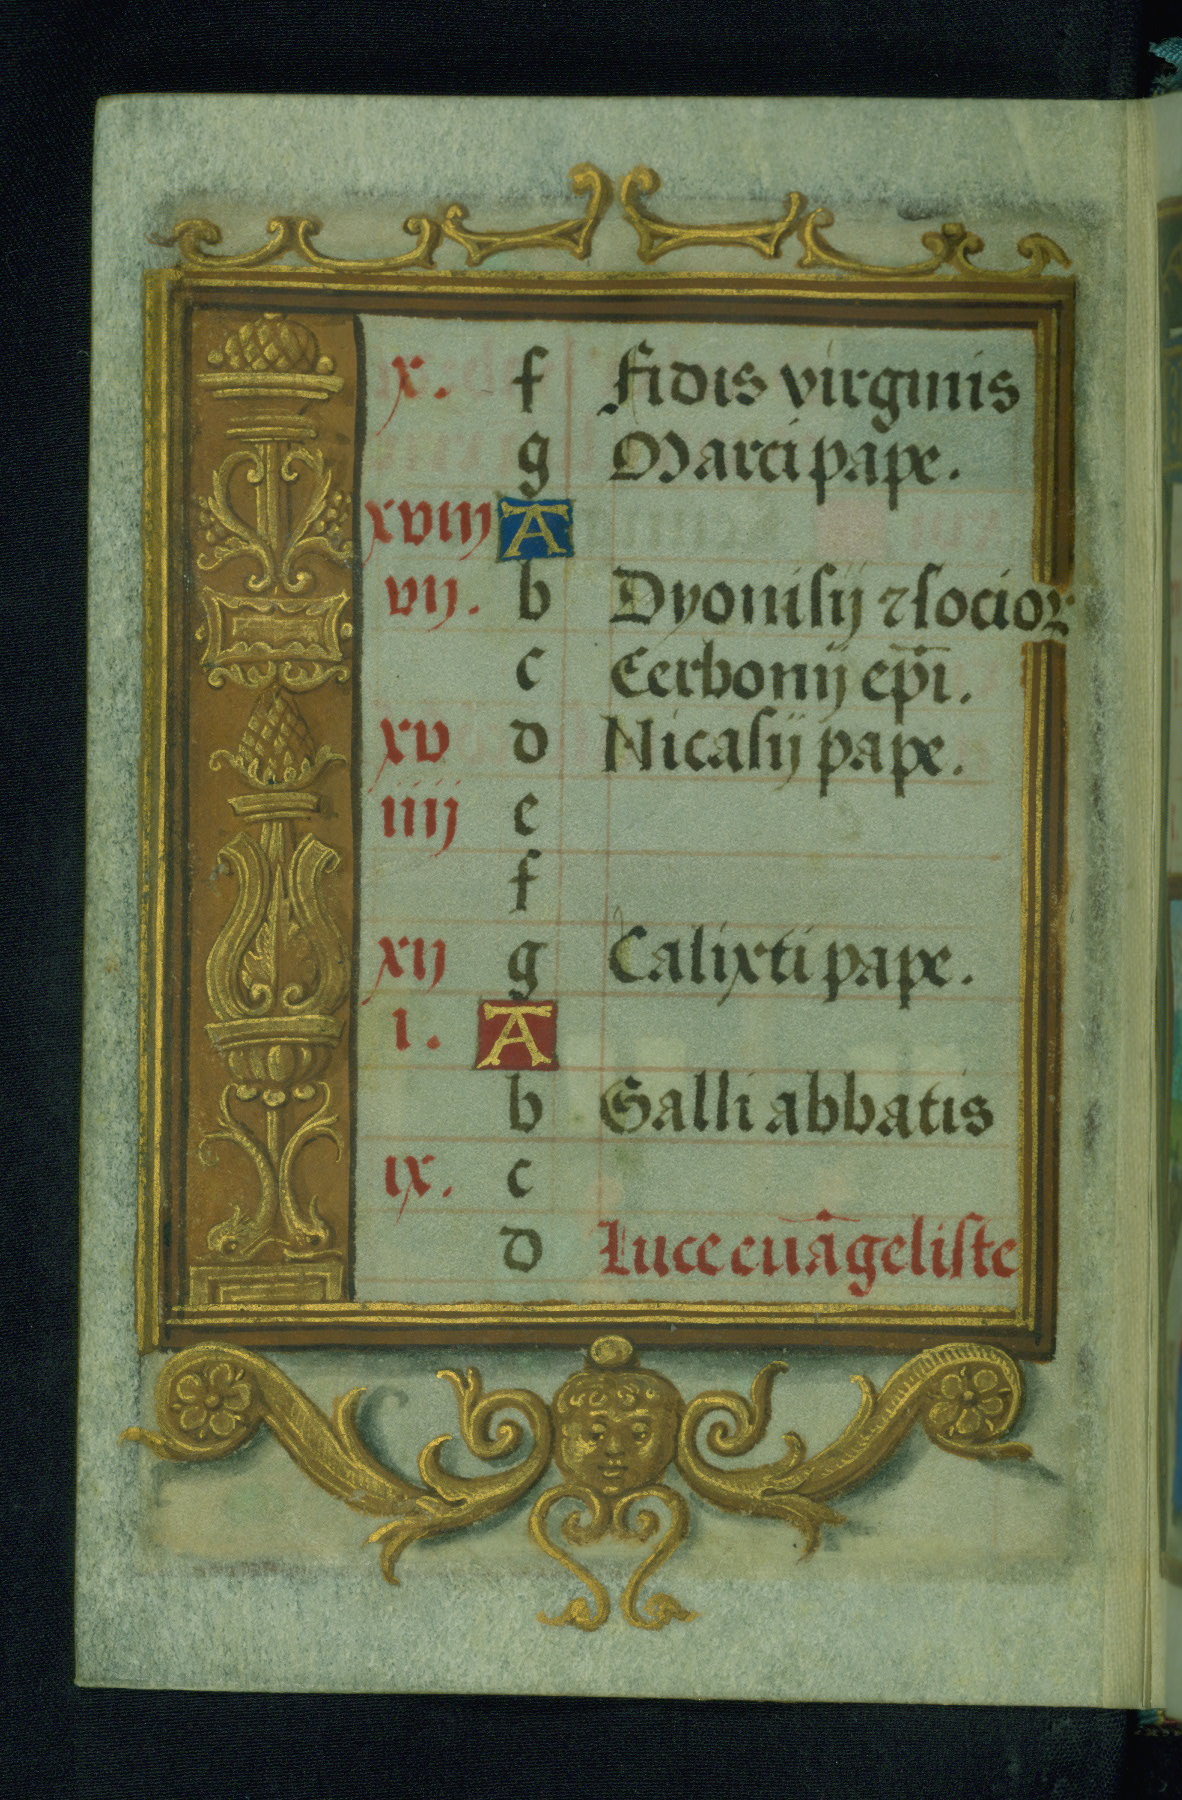 x. f Fidis virginis
g Marci pape.
xviij A
vij. b Dyonisij ⁊ socioꝝ
c Cerbonij ep̄i.
xv d Nicasij pape.
iiij e
f
xij g Calixti pape.
i. A
b Galli abbatis
ix. c
d Luce euāgeliste